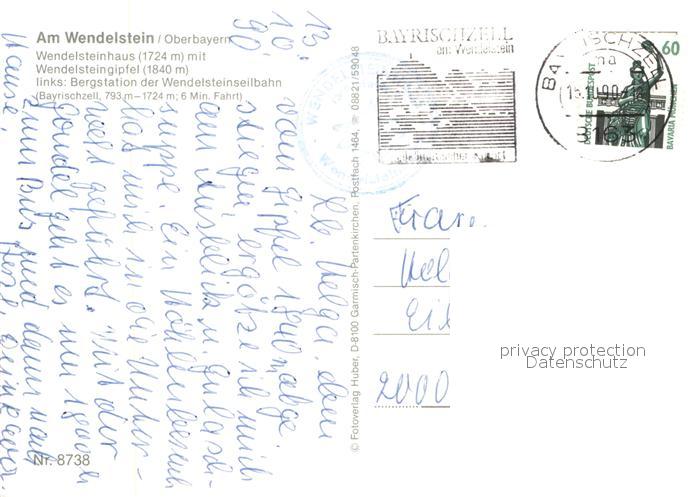 Am Wendelstein / Oberbayern
Wendelsteinhaus (1724 m) mit
Wendelsteingipfel (1840 m)
links: Bergstation der Wendelsteinseilbahn
(Bayrischzell, 793 m – 1724 m; 6 Min. Fahrt)
Nr. 8738
© Fotoverlag Huber, D-8100 Garmisch-Partenkirchen, Postfach 1464, ☎ 08821/59048
BAYRISCHZELL
am Wendelstein
BAYRISCHZELL
60
DEUTSCHE BUNDESPOST
BAVARIA MÜNCHEN
Wendelstein
13.
10.
90
Lb. Helga, eben
vom Gipfel 1840 abge-
stiegen ergötze ich mich
am Ausblick u. Gulasch-
suppe. Ein Höhlenbesuch
hat mich in die Unter-
welt geführt. Mit der
Gondel geht es um
zum Bus und dann nach
Hause.
Frau
Hel
Ei
2000
privacy protection
Datenschutz